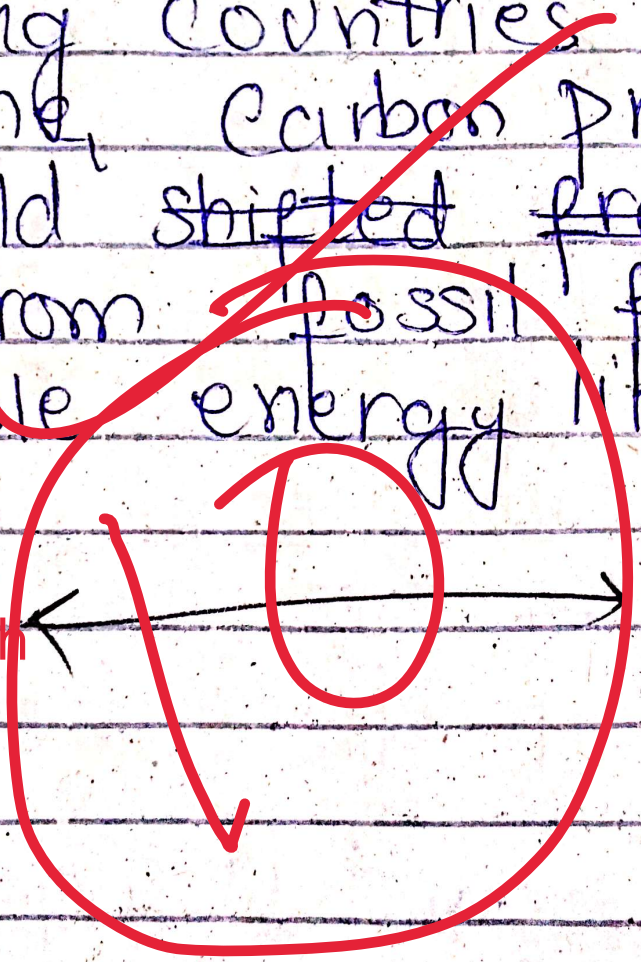 ng Countries
ne, Carbon pr
ld shifted fr
rom fossil f
le energy li
h
10